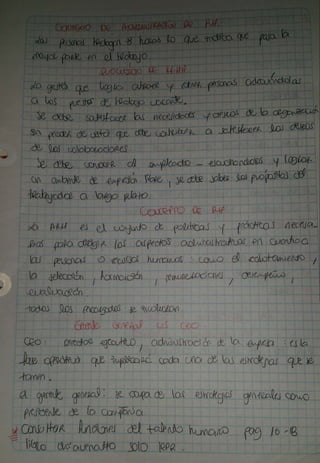 CONTEXTO DE ADMINISTRACIÓN DE RH
Las personas trabajan 8 horas lo que indica que pasa la
mayor parte en el trabajo.
EVOLUCIÓN DE RRHH
La gestión que logra atraer y retener personas
a los puestos de trabajo vacante.
Se debe satisfacer las necesidades y deseos de la organización
sin perder de vista que debe a satisfacer los deseos
de los colaboradores
Se debe conocer al empleado - escuchandolos y lograr
un ambiente de expresión libre, se debe saber los propósitos del
trabajador a largo plazo.
CONCEPTO DE RH
La ARH es el conjunto de políticas y prácticas necesa-
rias para dirigir los aspectos administrativos en cuanto a
las personas o recursos humanos como el reclutamiento,
la selección, formación, remuneraciones, desempeño,
evaluación.
todos los encargados se involucran.
Gerente General vs CEO
CEO: director ejecutivo, administración de la empresa: es la
fase operativa que cada una de las estrategias que se
tomen.
el gerente general: se ocupa de las estrategias generales como
presidente de la compañía
* Consultar funciones del talento humano pag 16-18
libro chiavenatto solo leer.